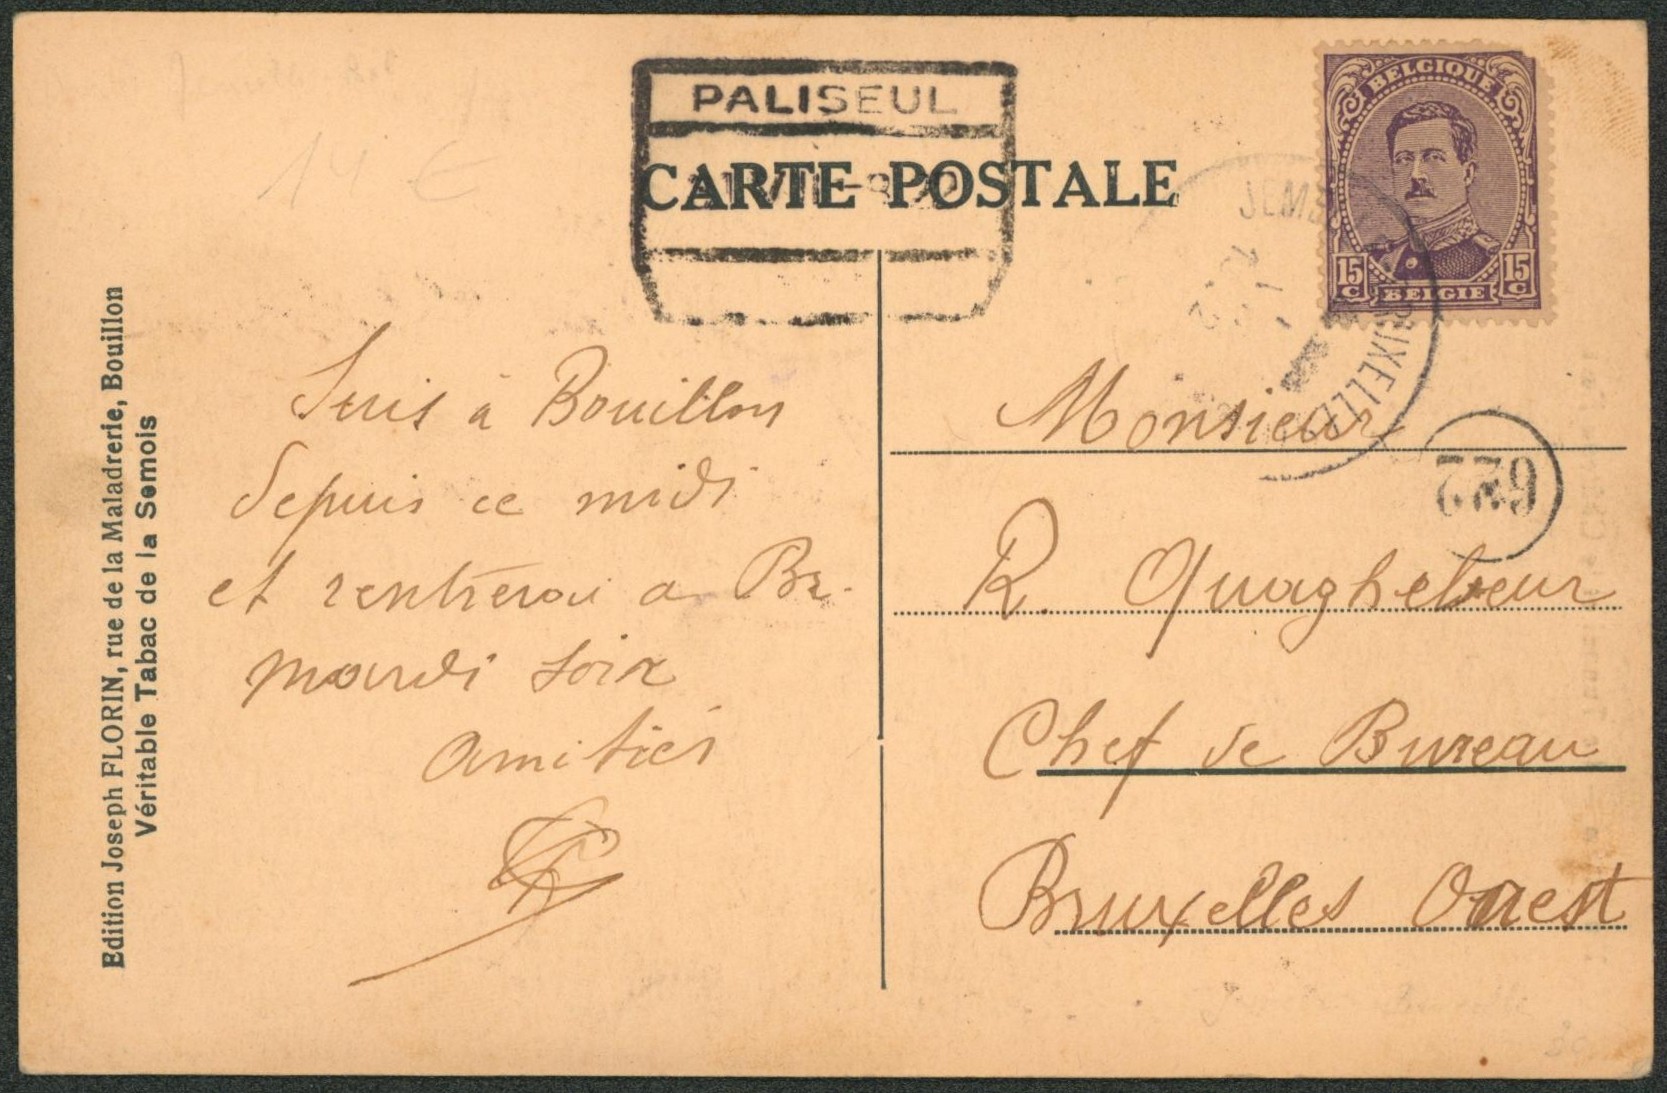 PALISEUL
CARTE POSTALE
BELGIQUE
15 C
15 C
BELGIE
622
Suis à Bouillon
depuis ce midi
et rentrerai a Br.
mardi soir
Amitiés
Monsieur
R. Quaghebeur
Chef de Bureau
Bruxelles Ouest
Edition Joseph FLORIN, rue de la Maladrerie, Bouillon
Véritable Tabac de la Semois
14 €